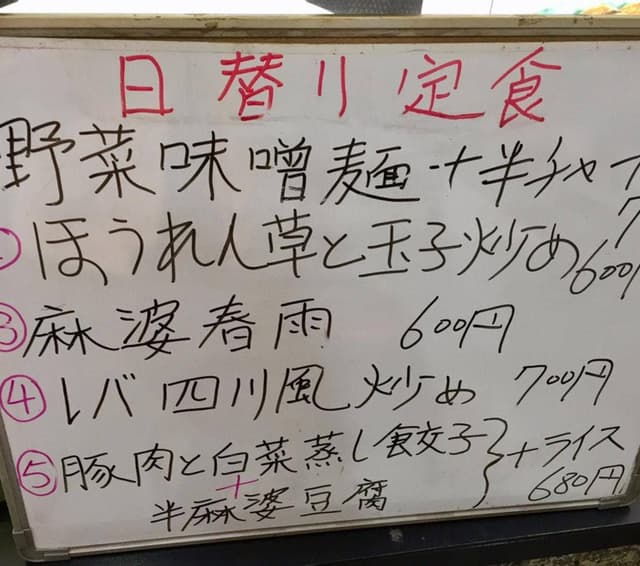 日替り定食
野菜味噌麺+半チャー
7
ほうれん草と玉子炒め 600円
③麻婆春雨 600円
④レバ四川風炒め 700円
⑤豚肉と白菜蒸し餃子 +ライス
+
半麻婆豆腐 680円